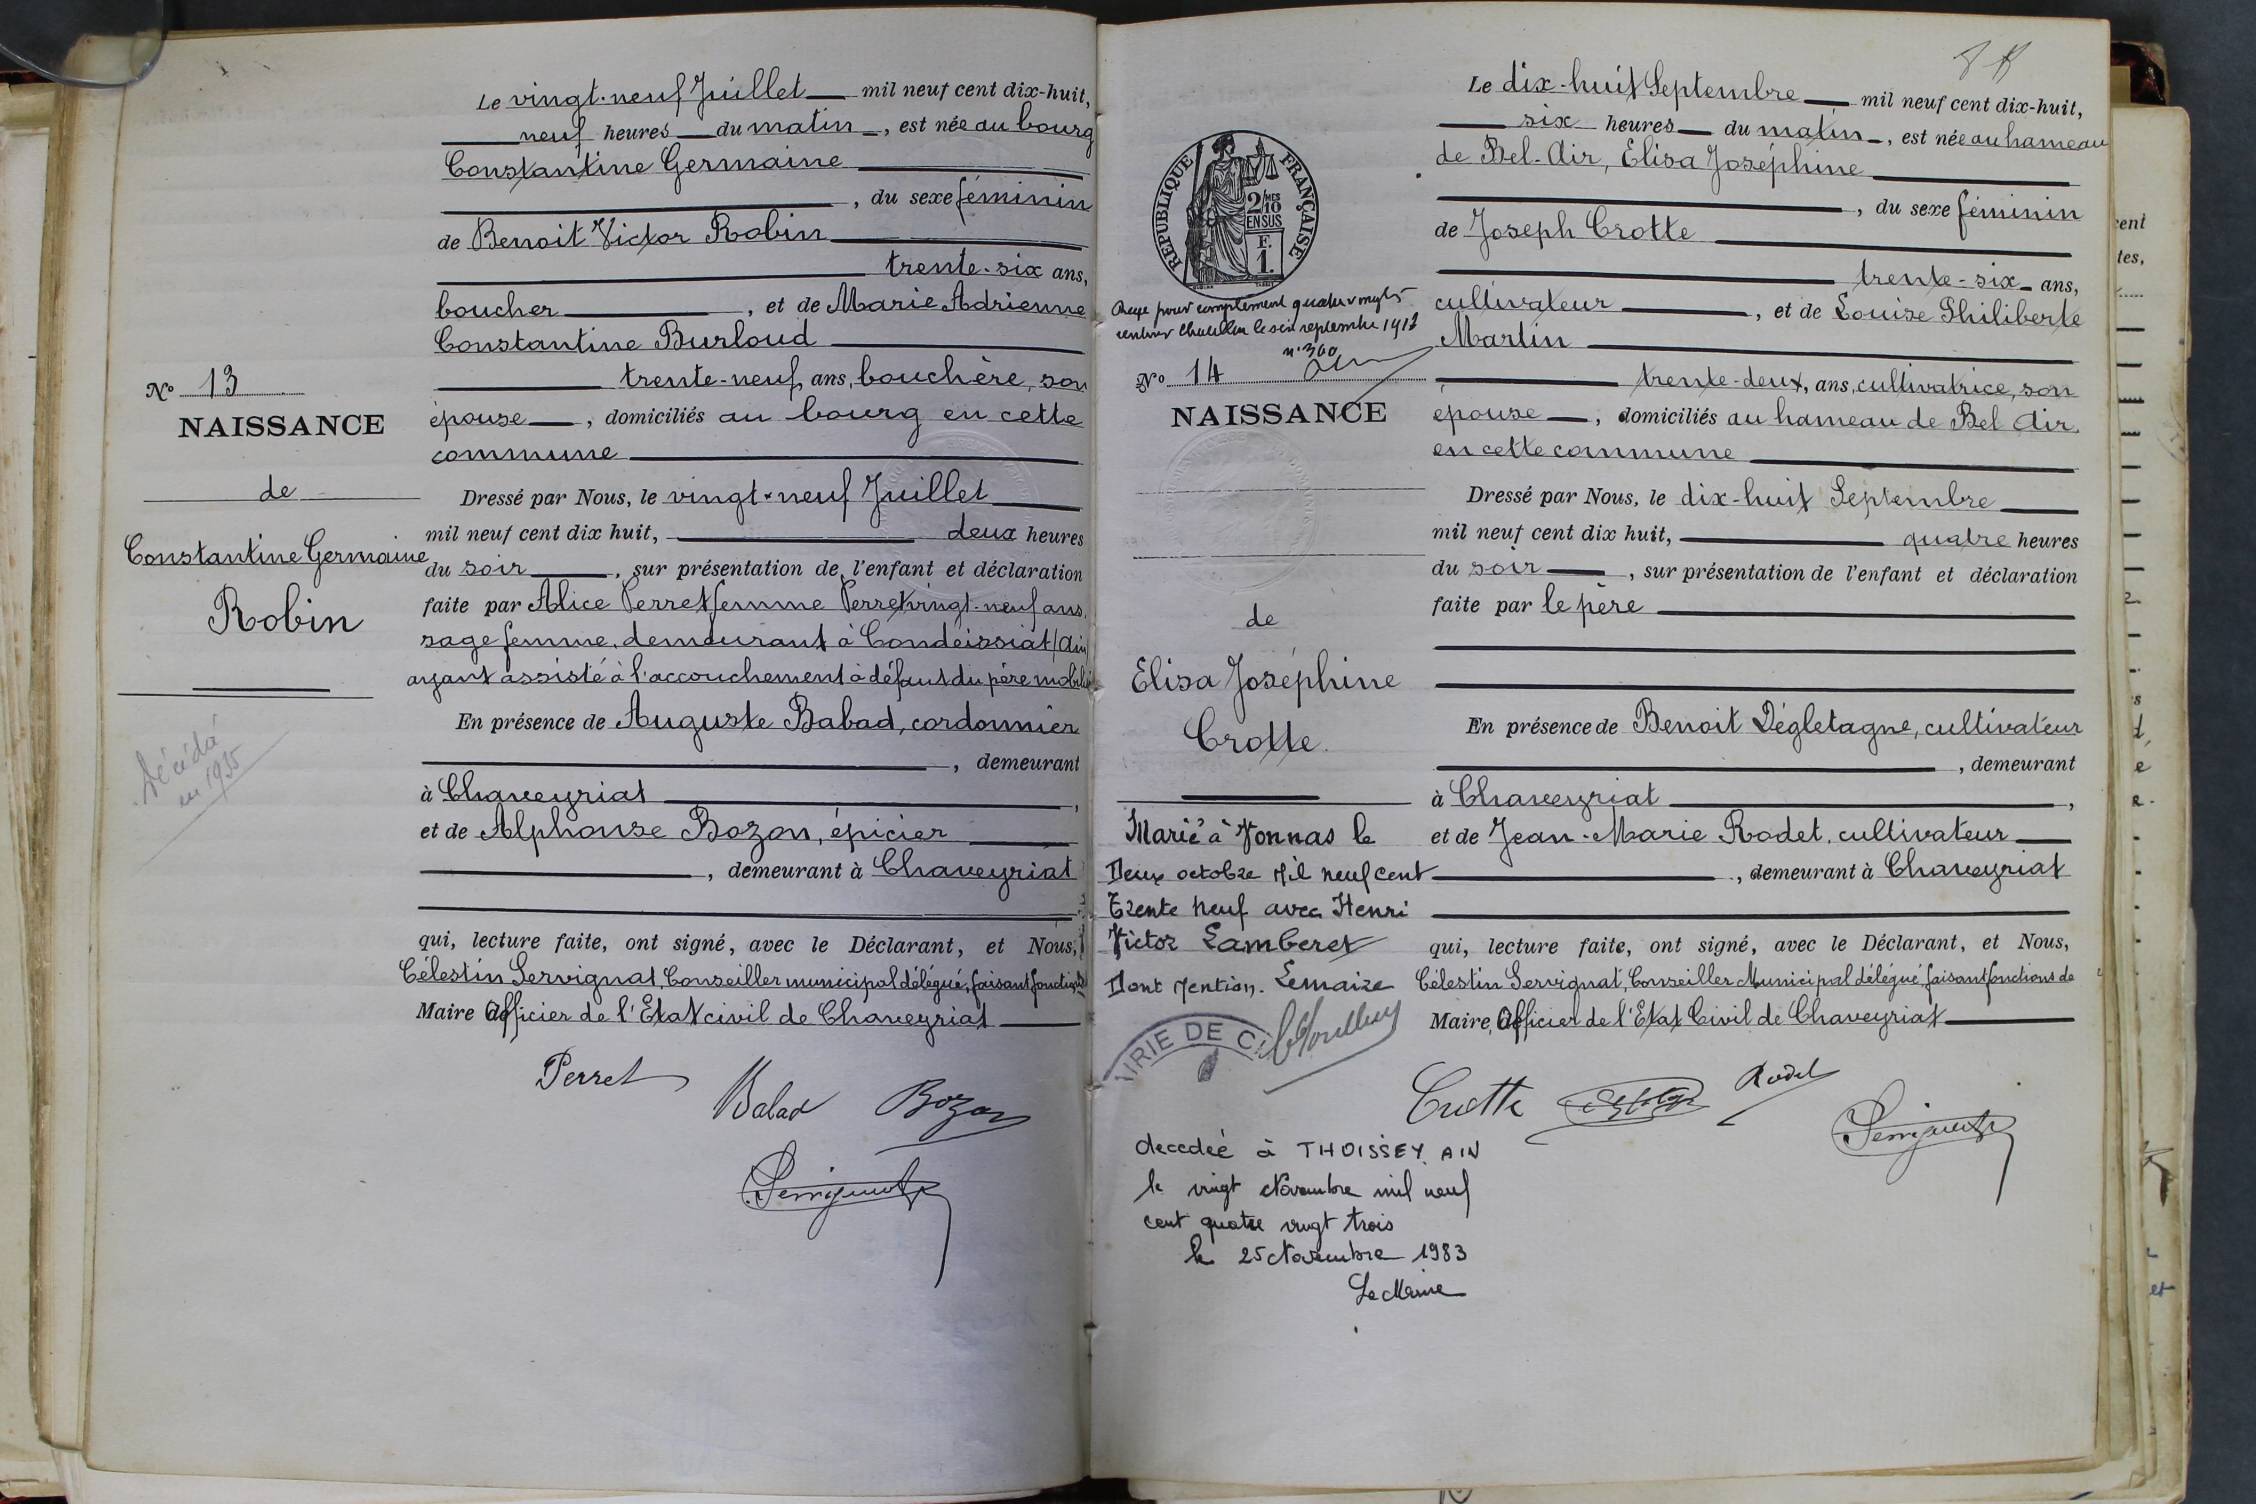 Le vingt-neuf Juillet mil neuf cent dix-huit,
neuf heures du matin, est née au bourg
Constantine Germaine
, du sexe féminin
de Benoit Victor Robin
trente-six ans,
boucher, et de Marie Adrienne
Constantine Burloud
trente-neuf ans, bouchère, son
épouse, domiciliés au bourg en cette
commune
Dressé par Nous, le vingt-neuf Juillet
mil neuf cent dix huit, deux heures
du soir, sur présentation de l'enfant et déclaration
faite par Alice Perret femme Perret vingt-neuf ans,
sage femme, demeurant à Condeissiat (Ain)
ayant assisté à l'accouchement à défaut du père
En présence de Auguste Babad, cordonnier
, demeurant
à Chaveyriat,
et de Alphonse Bozon, épicier
, demeurant à Chaveyriat
qui, lecture faite, ont signé, avec le Déclarant, et Nous,
Célestin Servignat, Conseiller municipal délégué, faisant
Maire Officier de l'Etat civil de Chaveyriat
Perret
Babad Bozon
Servignat
No 13
NAISSANCE
de
Constantine Germaine
Robin
Décédé
en 1935
REPUBLIQUE FRANÇAISE
2/10 MES
EN SUS
F.
1.
pour complement quatre vingts
le six septembre 1917
n° 360
No 14
NAISSANCE
de
Elisa Joséphine
Crotte.
Marié à Vonnas le
Deux octobre Mil neuf cent
Trente neuf avec Henri
Victor Lamberet
Dont Mention. Lemaire
MAIRIE DE C
decedée à THOISSEY AIN
le vingt Novembre mil neuf
cent quatre vingt trois
le 25 Novembre 1983
Le Maire
Le dix-huit Septembre mil neuf cent dix-huit,
six heures du matin, est née au hameau
de Bel-Air, Elisa Joséphine
, du sexe féminin
de Joseph Crotte
trente-six ans,
cultivateur, et de Louise Philiberte
Martin
trente-deux, ans, cultivatrice, son
épouse, domiciliés au hameau de Bel Air,
en cette commune
Dressé par Nous, le dix-huit Septembre
mil neuf cent dix huit, quatre heures
du soir, sur présentation de l'enfant et déclaration
faite par le père
En présence de Benoit Dégletagne, cultivateur
, demeurant
à Chaveyriat,
et de Jean-Marie Rodet, cultivateur
, demeurant à Chaveyriat
qui, lecture faite, ont signé, avec le Déclarant, et Nous,
Célestin Servignat, Conseiller Municipal délégué, faisant fonctions de
Maire, Officier de l'Etat Civil de Chaveyriat
Crotte Rodet
Servignat